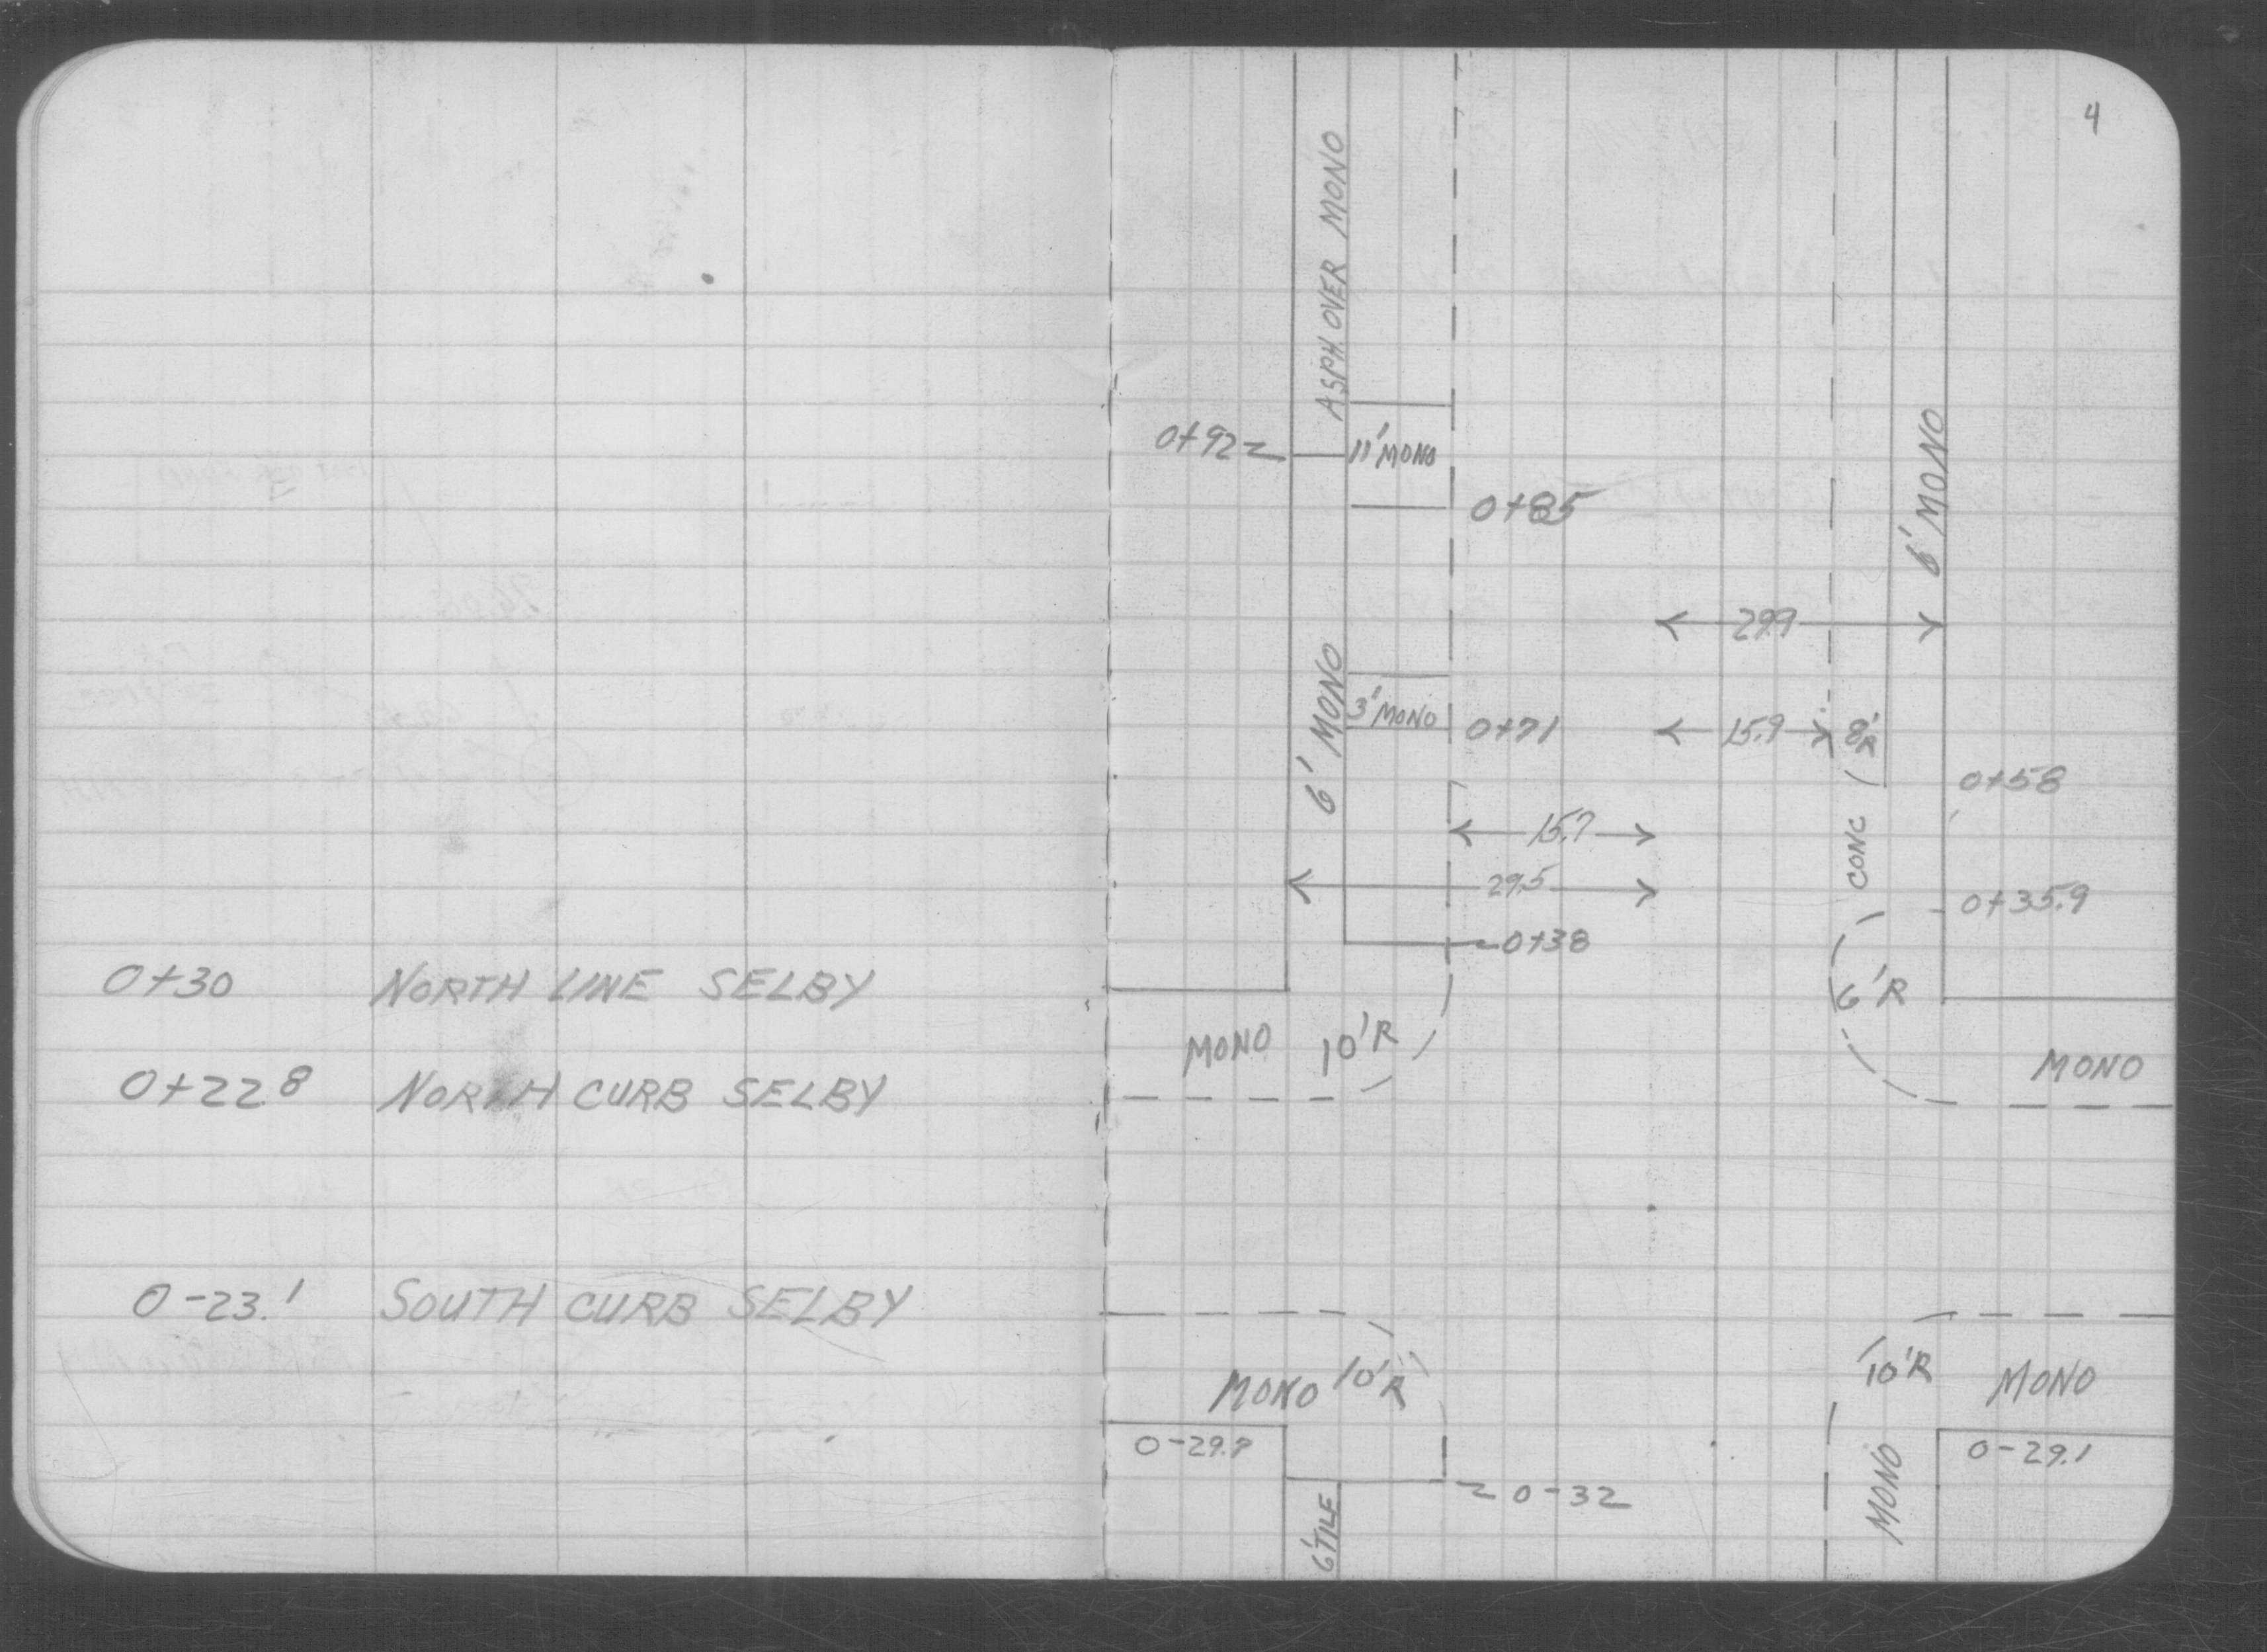 0+30 NORTH LINE SELBY
0+22.8 NORTH CURB SELBY
0-23.1 SOUTH CURB SELBY
4
ASPH. OVER MONO
0+92
11' MONO
0+85
6' MONO
29.9
6' MONO
3' MONO
0+71
15.9
8'R
0+58
15.7
CONC
29.5
0+35.9
0+38
6'R
MONO
10'R
MONO
10'R
MONO
10'R
MONO
0-29.7
MONO
0-29.1
0-32
6' TILE